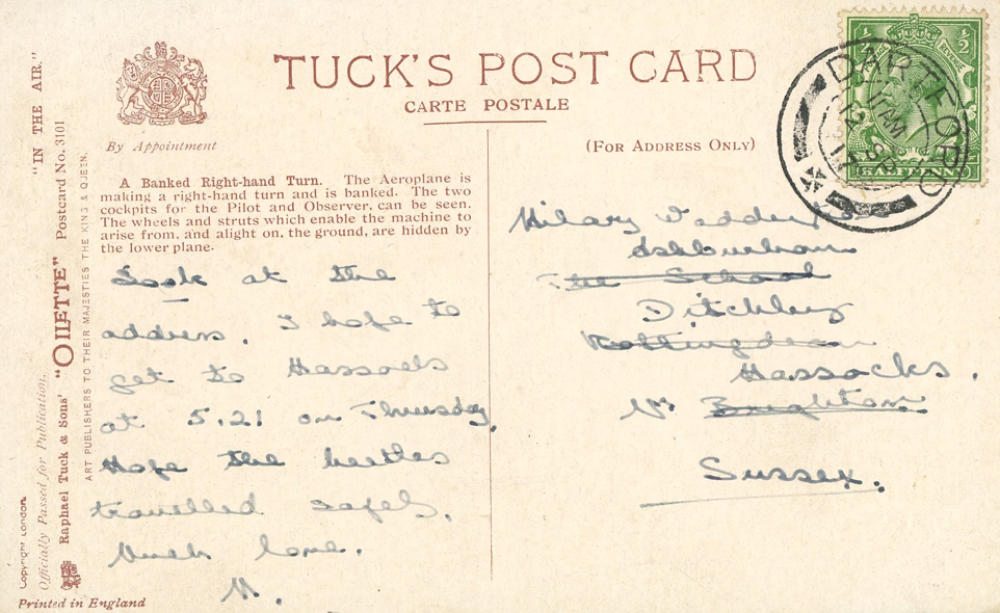 TUCK'S POST CARD
CARTE POSTALE
By Appointment
(FOR ADDRESS ONLY)
A Banked Right-hand Turn. The Aeroplane is
making a right-hand turn and is banked. The two
cockpits for the Pilot and Observer, can be seen.
The wheels and struts which enable the machine to
arise from, and alight on, the ground, are hidden by
the lower plane.
Look at the
address. I hope to
get to Hassocks
at 5.21 on Thursday.
Hope the beetles
travelled safely.
Much love.
M.
Hilary
The School
Ditchling
Rottingdean
Hassocks.
Nr Brighton
Sussex.
½ ½
HALFPENNY
DARTFORD
11 AM
12 SP
17
"IN THE AIR."
"OILETTE" Postcard No. 3101
Raphael Tuck & Sons'
ART PUBLISHERS TO THEIR MAJESTIES THE KING & QUEEN.
Officially Passed for Publication.
Copyright London
Printed in England